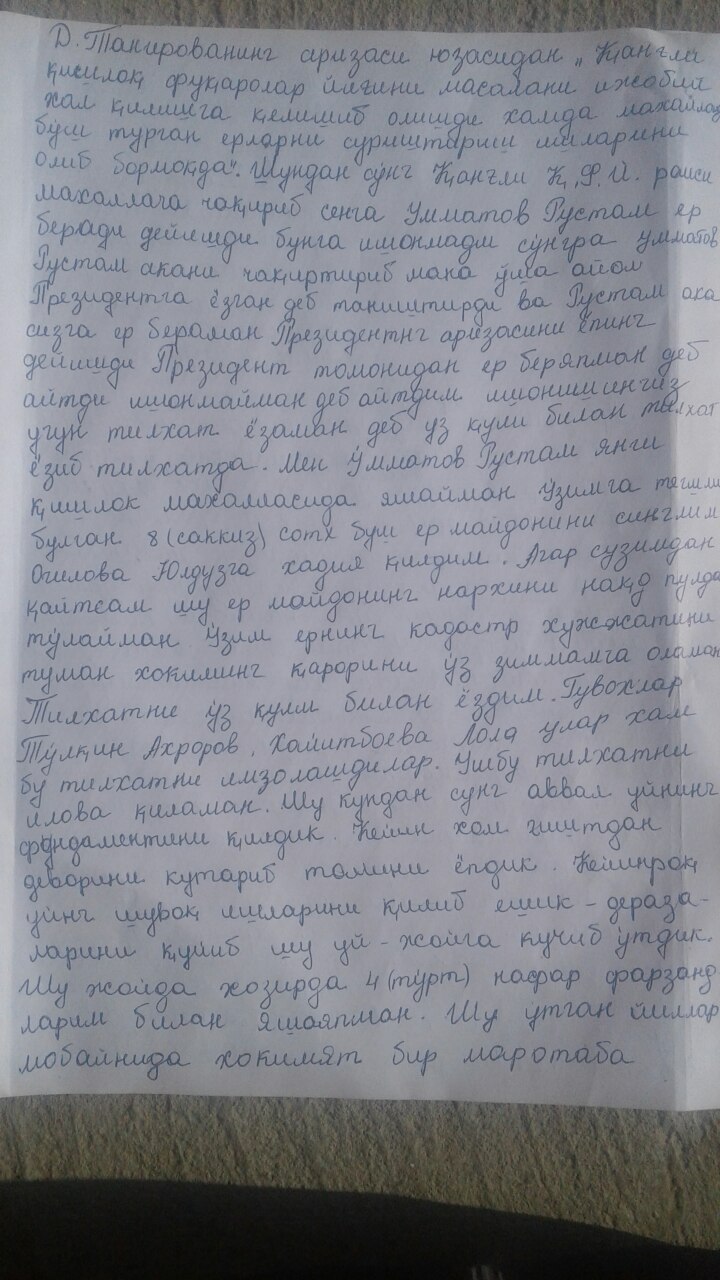 Д. Танированинг аризаси юзасидан „Қангли
қишлоқ фуқаролар йиғини масалани ижобий
хал қилишга келишиб олишди хамда махаллада
бўш турган ерларни суриштириш ишларини
олиб бормоқда". Шундан сўнг Қангли Қ.Ф.Й. раиси
махаллага чақириб сенга Умматов Рустам ер
беради дейишди бунга ишонмадим сўнгра Умматов
Рустам акани чақиртириб мана ўша аёл
Президентга ёзган деб таништирди ва Рустам ака
сизга ер бераман Президентнг аризасини ёпинг
дейишди Президент томонидан ер беряпман деб
айтди ишонмайман деб айтдим ишонишингиз
учун тилхат ёзаман деб уз қули билан тилхат
ёзиб тилхатда. Мен Умматов Рустам янги
қишлок махалласида яшайман Узимга тегишли
булган 8 (саккиз) сотх буш ер майдонини синглим
Огилова Юлдузга хадия қилдим. Агар сузимдан
қайтсам шу ер майдонинг нархини нақд пулда
тўлайман Узим ернинг кадастр хужжатини
туман хокиминг қарорини ўз зиммамга оламан
Тилхатни ўз қулим билан ёздим. Гувохлар
Тўлқин Ахроров, Хаитбоева Лола улар хам
бу тилхатни имзолашдилар. Ушбу тилхатни
илова қиламан. Шу кундан сунг аввал уйнинг
фундаментини қилдик. Кейин хом гиштдан
деворини кутариб томини ёпдик. Кейинроқ
уйнг шувоқ ишларини қилиб ешик - дераза-
ларини қуйиб шу уй - жойга кучиб ўтдик.
Шу жойда хозирда 4 (тўрт) нафар фарзанд-
ларим билан яшаяпман. Шу ўтган йиллар
мобайнида хокимят бир маротаба